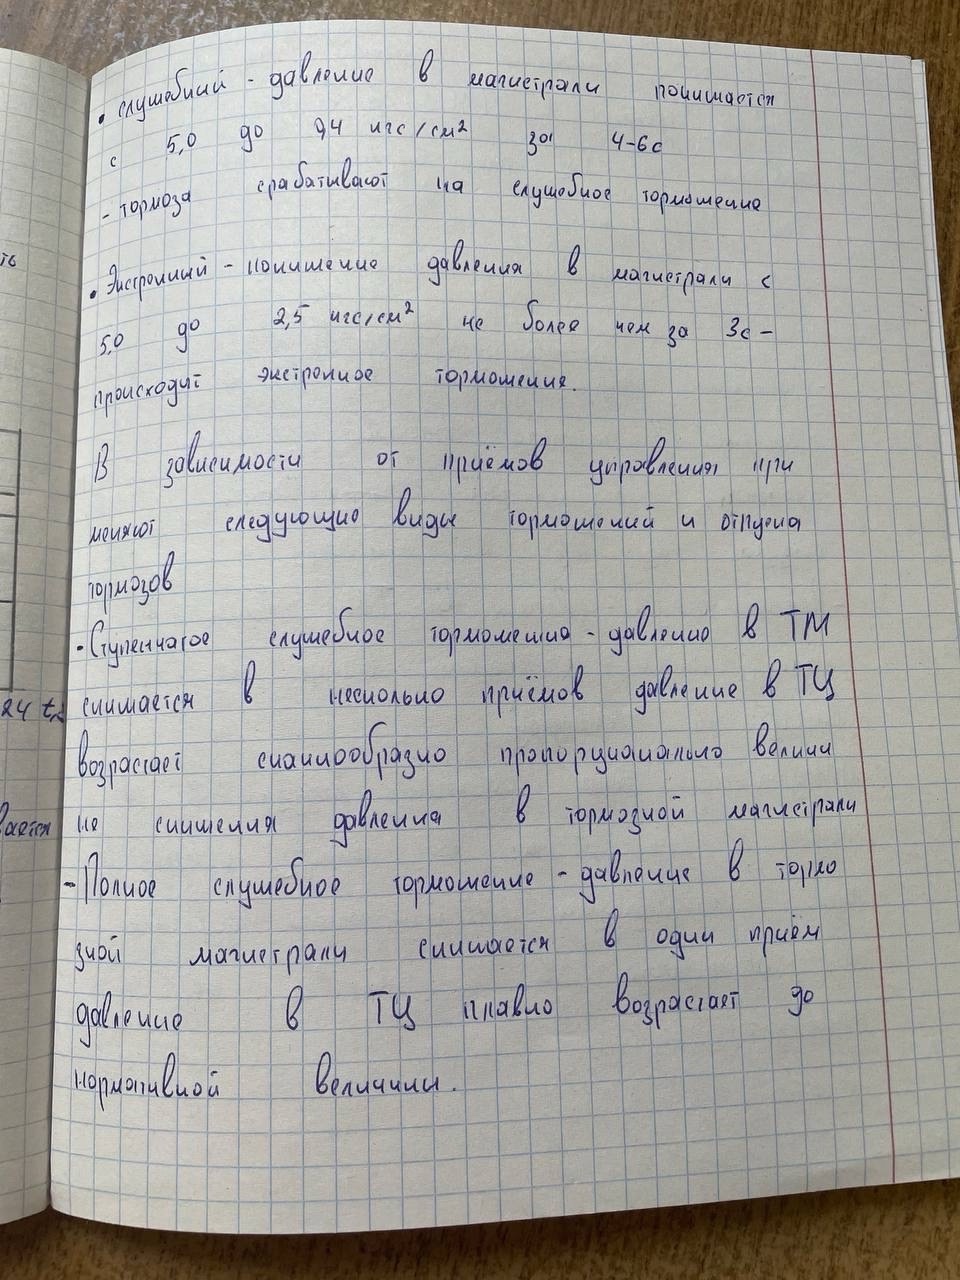 • служебный - давление в магистрали понижается
с 5,0 до 0,4 кгс/см² за 4-6с
- тормоза срабатывают на служебное торможение
• Экстренный - понижение давления в магистрали с
5,0 до 2,5 кгс/см² не более чем за 3с -
происходит экстренное торможение.
В зависимости от приёмов управления при
меняют следующие виды торможений и отпуска
тормозов
- Ступенчатое служебное торможение - давление в ТМ
снижается в несколько приёмов давление в ТЦ
возрастает скачкообразно пропорционально величи
не снижения давления в тормозной магистрали
- Полное служебное торможение - давление в тормо
зной магистрали снижается в один приём
давление в ТЦ плавно возрастает до
нормативной величины.
ть
24 t
вается